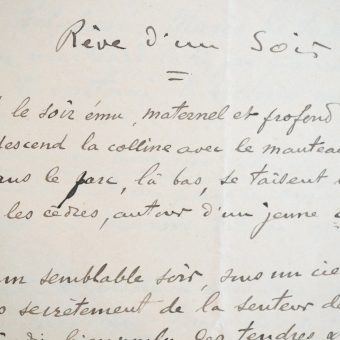 Rêve d'un Soir
le soir ému, maternel et profond
descend la colline avec le manteau
le parc, là bas, se taisent
les cèdres, autour d'un jeune
semblable soir, sous un cie
secrètement de la senteur de
tendres